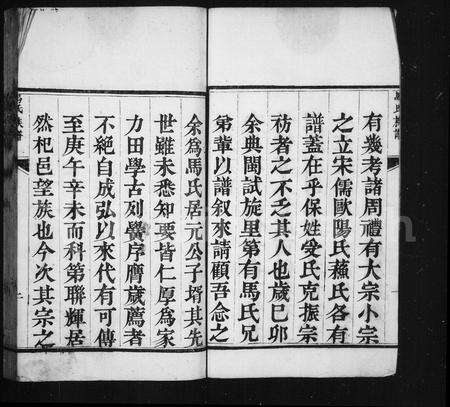 有幾考諸周禮有大宗小宗
之立宋儒歐陽氏蘓氏各有
譜蓋在乎保姓受氏克振宗
祊者之不乏其人也歲巳卯
余典閩試旋里第有馬氏兄
弟輩以譜叙來請顧吾念之
余為馬氏居元公子壻其先
世雖未悉知要皆仁厚為家
力田學古列黌序膺歲薦者
不絕自成弘以來代有可傳
至庚午辛未而科第聯輝居
然杞邑望族也今次其宗之